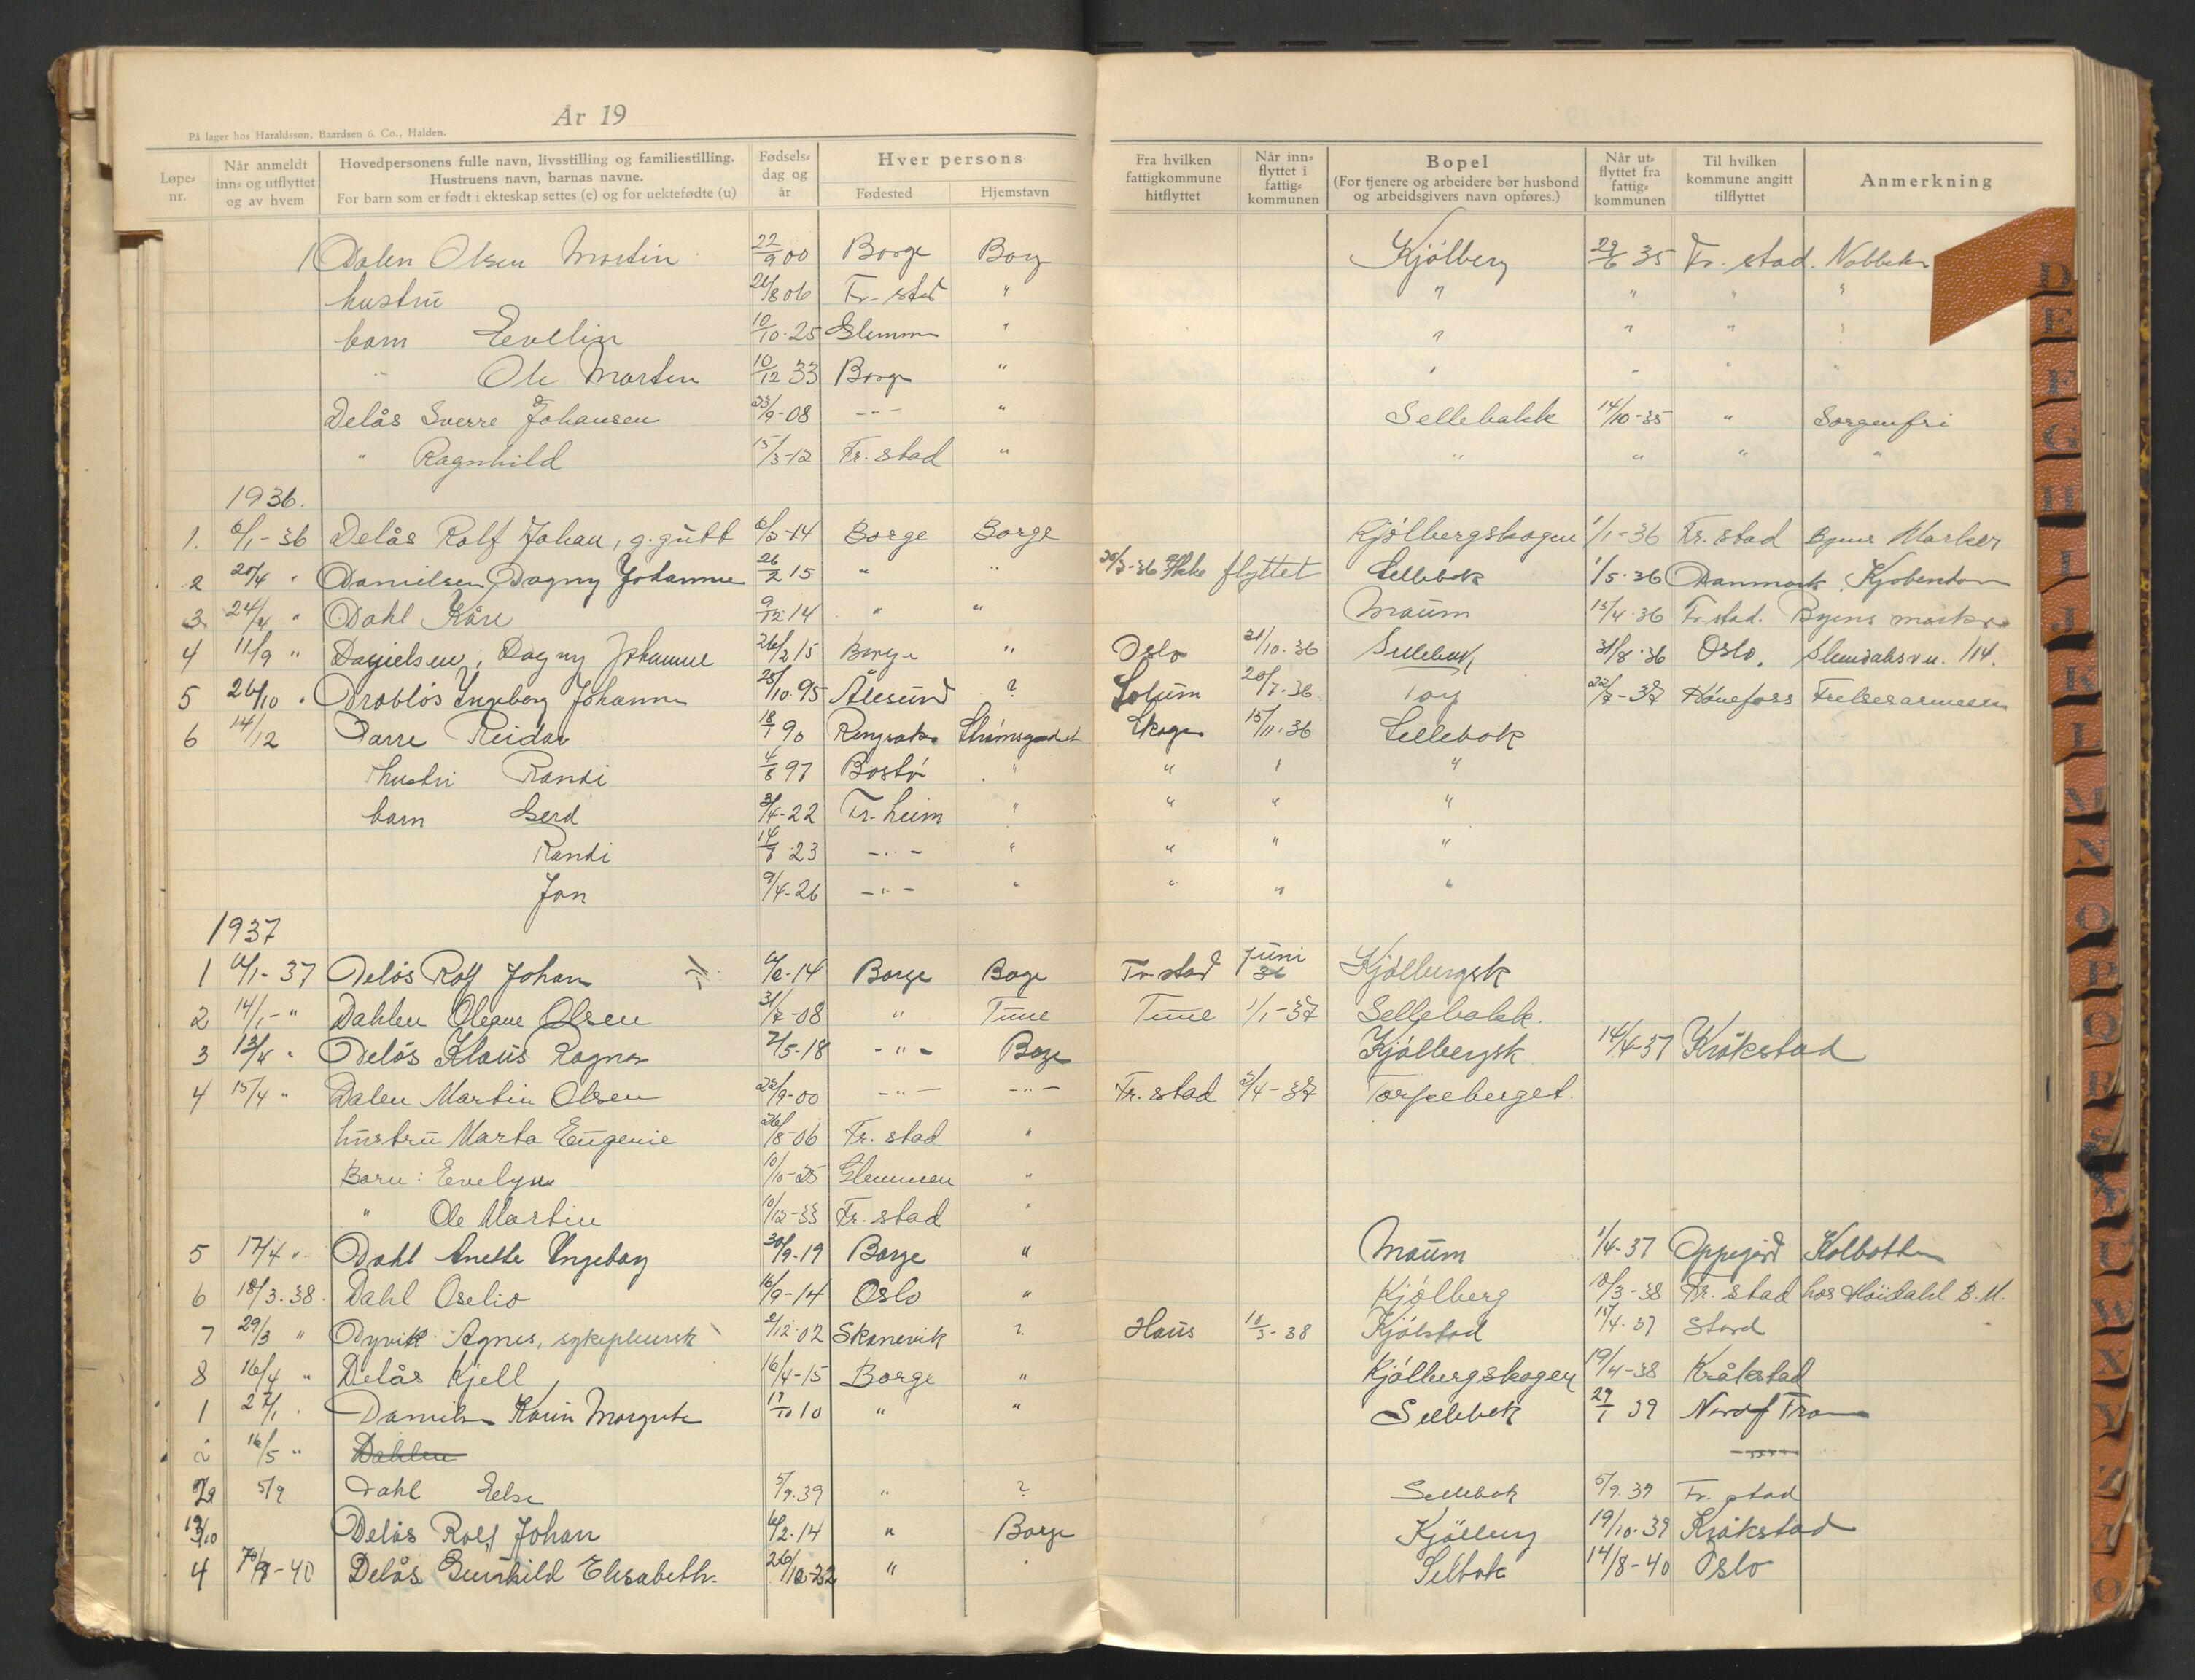 År 19
På lager hos Haraldssøn, Baardsen & Co., Halden.
Løpe-nr. Når anmeldt inn- og utflyttet og av hvem Hovedpersonens fulle navn, livsstilling og familiestilling. Hustruens navn, barnas navne. For barn som er født i ekteskap settes (e) og for uektefødte (u) Fødsels-dag og år Hver persons Fødested Hjemstavn Fra hvilken fattigkommune hitflyttet Når inn-flyttet i fattig-kommunen Bopel (For tjenere og arbeidere bør husbond og arbeidsgivers navn opføres.) Når ut-flyttet fra fattig-kommunen Til hvilken kommune angitt tilflyttet Anmerkning
1 Dalen Olsen Martin 22/9 00 Borge Borg Kjölberg 29/6 35 Fr. stad.
hustru 26/8 06 Fr-stad " " " " "
barn Evelin 10/10-25 Glemm " " " "
" Ole Marten 10/12 33 Borge " " " " "
Delås Sverre Johansen 23/9-08 -"- " Sellebakk 14/10-35 " Sorgenfri
" Ragnhild 15/3-12 Fr. stad " " " " "
1936.
1. 6/1-36 Delås Rolf Johan, g. gutt 6/2-14 Borge Borge Kjölbergskogen 1/1-36 Fr. stad Byens Marker
2 25/4 " Danielsen Dagny Johanne 26/2 15 " " Ikke flyttet Sellebak 1/5-36 Danmark. Kjobenhavn
3. 24/4 " Dahl Kåre 9/12-14 " " Maum 15/4-36 Fr. stad. Byens marker
4 11/9 " Danielsen, Dagny Johanne 26/2 15 Borge " Oslo 31/10-36 Sellebak 31/8-36 Oslo. 114.
5 26/10 " Drabløs Ingeborg Johanne 25/10-95 Ålesund ? Solum 20/7-36 Torp 22/7-37 Hönefoss Frelsesarmeen
6 14/12 Darre Reidar 18/7 90 Ringsaker Strömsgodset Skoger 15/11-36 Sellebak
hustru Randi 4/8 97 " " " "
barn Gerd 3/4-22 Tr-heim " " " "
Randi 14/8-23 -"- " " " "
Jon 9/4-26 -"- " " " "
1937
1 6/1-37 Delås Rolf Johan 6/2-14 Borge Borge Fr-stad Juni 36 Kjölbergsk
2 14/1-" Dahlen Olsen 31/7-08 " Tune Tune 1/1-37 Sellebakk.
3 13/4 " Delås Klaus Ragnar 2/5-18 -"- Borge Kjölbergsk 14/4-37 Kråkstad
4 15/4 " Dalen Martin Olsen 22/9-00 -"- -"- Fr. stad 3/4-37 Torpeberget.
hustru Marta Eugenie 26/8-06 Fr. stad "
Barn: Evelyn 10/10-25 Glemmen "
" Ole Martin 10/12-33 Fr. stad "
5 17/4 " Dahl Anette Ingeborg 30/9-19 Borge " Maum 1/4-37 Oppegård Kolbotten
6 18/3-38. Dahl Oselio 16/9-14 Oslo " Kjölberg 10/3-38 Fr. stad hos Höidahl B. M.
7 29/3 " Dyvik Agnes, sykepleiersk 2/12-02 Skånevik ? Haus 10/3-38 Kjölstad 15/4-37 Stord
8 16/4 " Delås Kjell 16/4-15 Borge " Kjölbergskogen 19/4-38 Kråkstad
1 27/1 " Danielsen Karin Margrete 17/10 10 " " Sellebak 27/1 39
2 16/5 " Dahlen
5/9 Dahl Else 5/9-39 " ? Sellebak 5/9-39 Fr. stad
3 19/10 Delås Rolf Johan 6/2-14 " Borge Kjölberg 19/10-39 Kråkstad
4 -40 Delås Gunhild Elisabeth 26/12-22 " " Selbak 14/8-40 Oslo